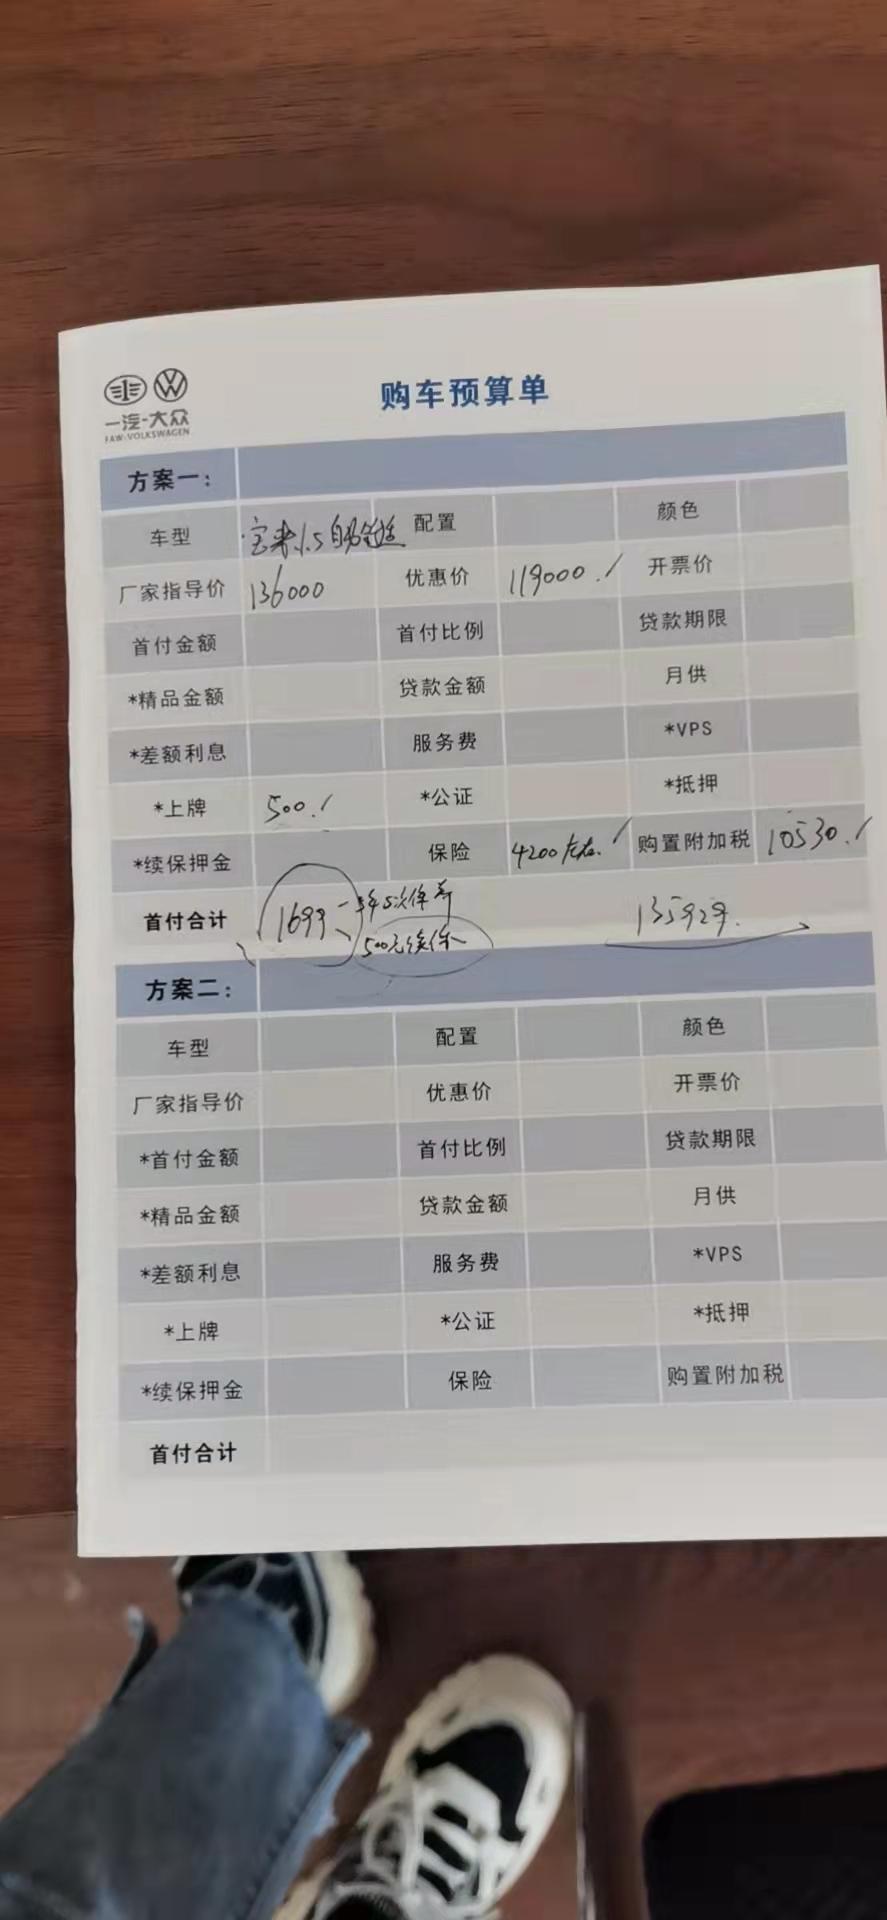 一汽-大众
FAW-VOLKSWAGEN
购车预算单
方案一：
车型 宝来1.5自动 配置 颜色
厂家指导价 136000 优惠价 119000./ 开票价
首付金额 首付比例 贷款期限
*精品金额 贷款金额 月供
*差额利息 服务费 *VPS
*上牌 500./ *公证 *抵押
*续保押金 保险 4200左右./ 购置附加税 10530./
首付合计 1699 135929.
500元续保
方案二：
车型 配置 颜色
厂家指导价 优惠价 开票价
*首付金额 首付比例 贷款期限
*精品金额 贷款金额 月供
*差额利息 服务费 *VPS
*上牌 *公证 *抵押
*续保押金 保险 购置附加税
首付合计